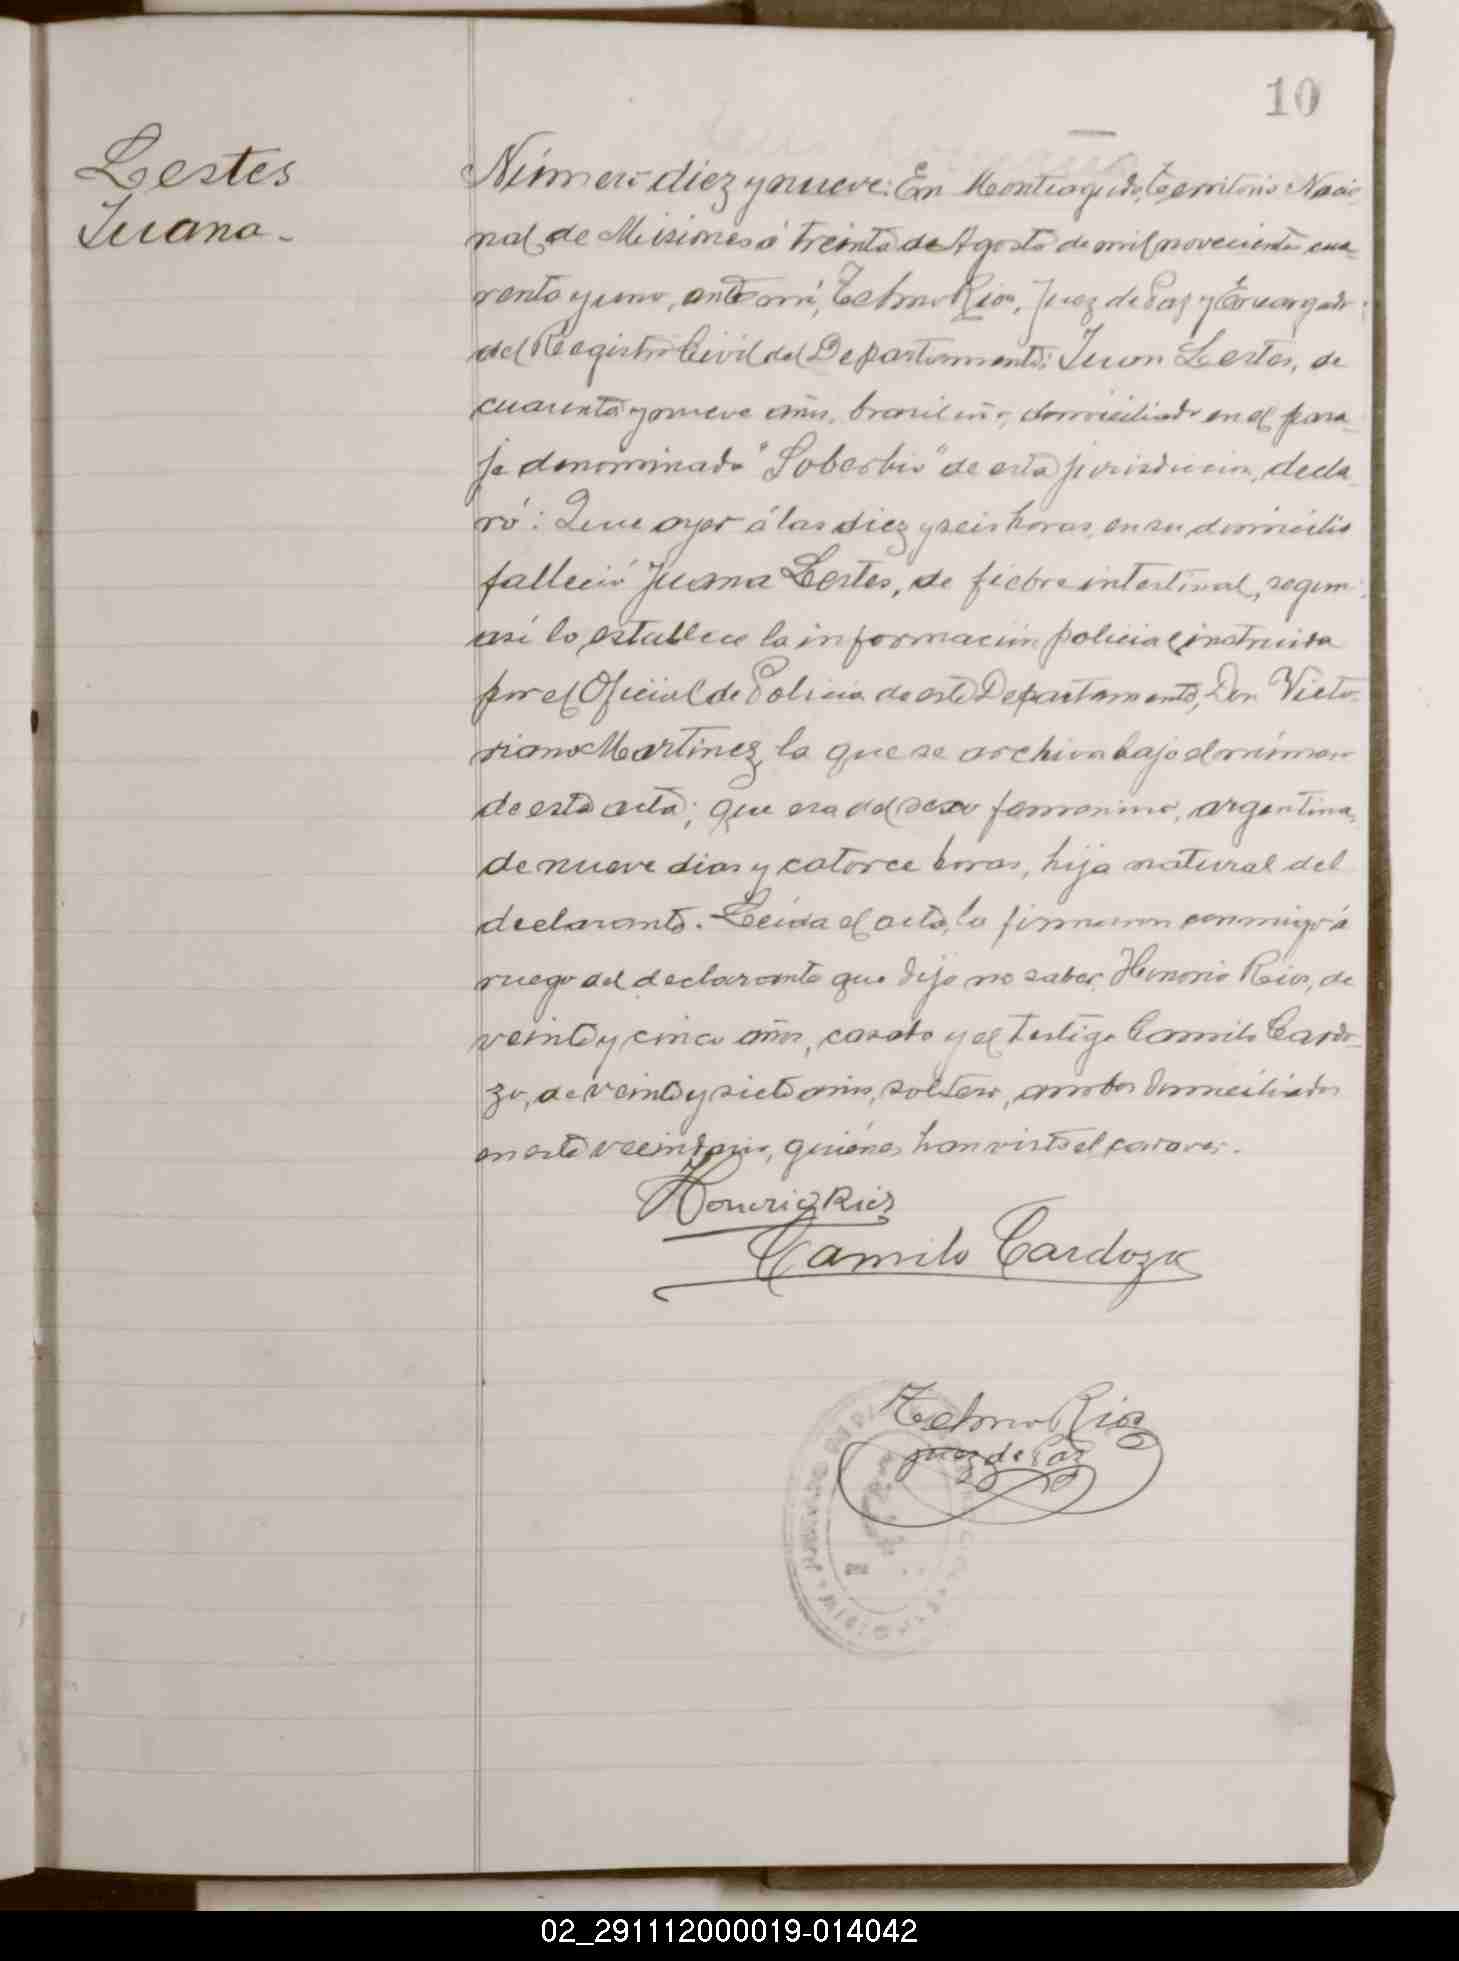 10
Lestes
Juana-
Número diez y nueve: En Monteagudo, Territorio Nacio-
nal de Misiones á treinta de Agosto de mil novecientos cua-
renta y uno, ante mí, Telmo Rios, Juez de Paz y Encargado
del Registro Civil del Departamento; Juan Lestes, de
cuarenta y nueve años, brasileño, domiciliado en el para-
je denominado "Soberbio" de esta jurisdicción, decla-
ró: Que ayer á las diez y seis horas, en su domicilio
falleció Juana Lestes, de fiebre intestinal, segun
así lo establece la información policial instruida
por el Oficial de Policia de este Departamento, Don Victo-
riano Martinez, la que se archiva bajo el número
de esta acta; que era del sexo femenino, argentina,
de nueve dias y catorce horas, hija natural del
declarante. Leída el acta, la firmaron conmigo á
ruego del declarante que dijo no saber, Honorio Rios, de
veinte y cinco años, casado y el testigo Camilo Cardo-
zo, de veinte y siete años, soltero, ambos domiciliados
en este vecindario, quiénes han visto el cadaver.
Honorio Rios
Camilo Cardozo
Telmo Rios
Juez de Paz
02_291112000019-014042